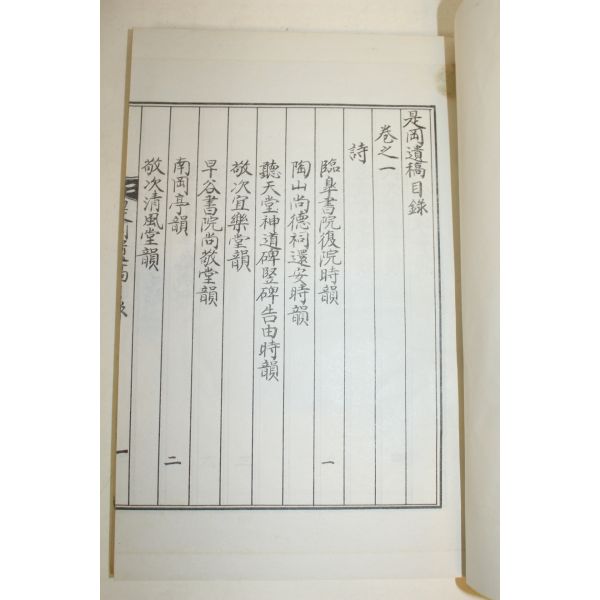 是岡遺稿目錄
卷之一
詩
臨皐書院復院時韻
一
陶山尚德祠還安時韻
聽天堂神道碑竪碑告由時韻
敬次宜樂堂韻
早谷書院尚敬堂韻
南岡亭韻
二
敬次清風堂韻
一